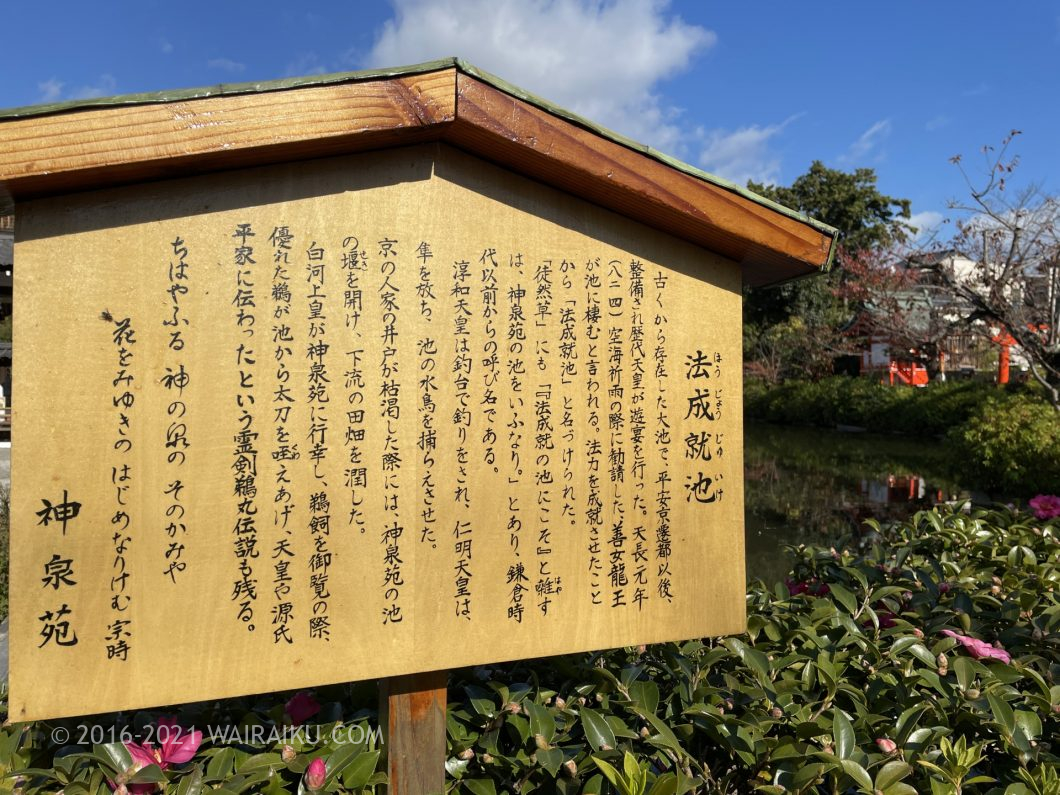 法成就池
ほうじょうじゅいけ
古くから存在した大池で、平安京遷都以後、
整備され歴代天皇が遊宴を行った。天長元年
(八二四)空海祈雨の際に勧請した、善女龍王
が池に棲むと言われる。法力を成就させたこと
から「法成就池」と名づけられた。
「徒然草」にも『「法成就の池にこそ』と囃す
はや
は、神泉苑の池をいふなり。」とあり、鎌倉時
代以前からの呼び名である。
淳和天皇は釣台で釣りをされ、仁明天皇は、
隼を放ち、池の水鳥を捕らえさせた。
京の人家の井戸が枯渇した際には、神泉苑の池
の堰を開け、下流の田畑を潤した。
せき
白河上皇が神泉苑に行幸し、鵜飼を御覧の際、
優れた鵜が池から太刀を咥えあげ、天皇や源氏
平家に伝わったという霊剣鵜丸伝説も残る。
ちはやふる 神の泉の そのかみや
花をみゆきの はじめなりけむ 宗時
神泉苑
© 2016-2021 WAIRAIKU.COM